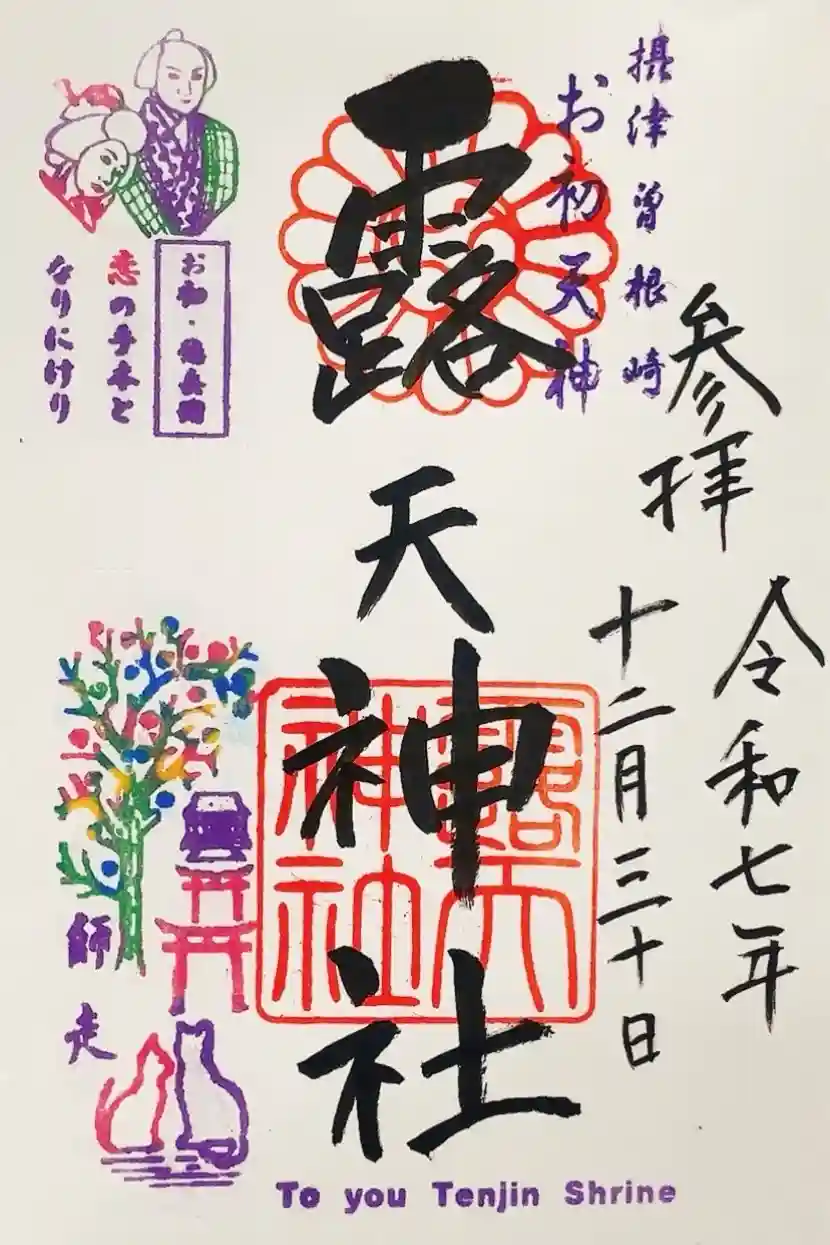 摂津曽根崎
お初天神
参拝
令和七年
十二月三十日
露天神社
露天
神社
お初・徳兵衛
恋の手本と
なりにけり
師走
To you Tenjin Shrine